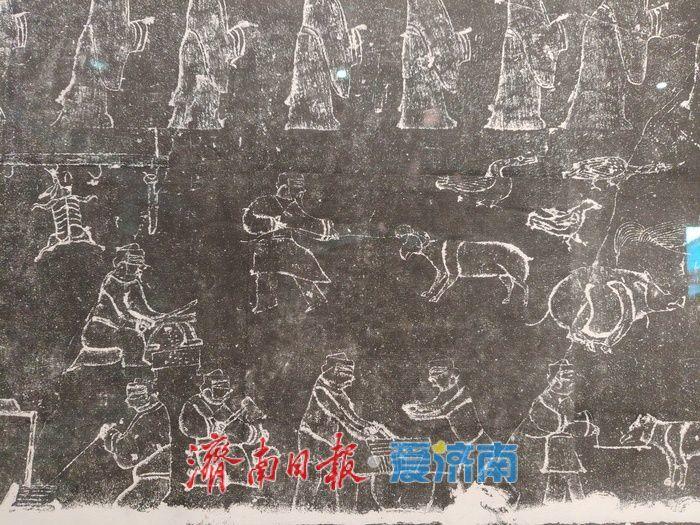 濟南日报 爱济南